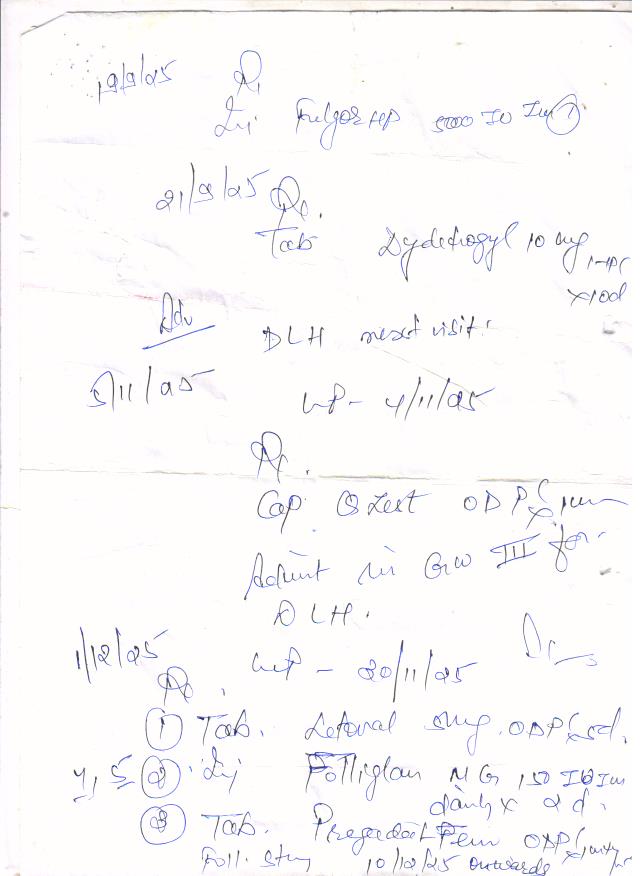 19/9/25 Rx
Inj Fulgor HP 5000 IU IM ①
21/9/25 Rx.
Tab Dydrogyl 10 mg
x10d
Adv DLH next visit.
5/11/25 LMP - 4/11/25
Rx.
Cap. Q Zest ODPC x 1
Admit in GW III for
DLH.
1/12/25 LMP - 30/11/25
Rx.
① Tab. Letoval 5mg ODPC x 5d.
4, 5 ② Inj Folliglan MG 150 IU IM
daily x 2d.
③ Tab. Fem ODPC x
Foll. Study 10/12/25 onwards